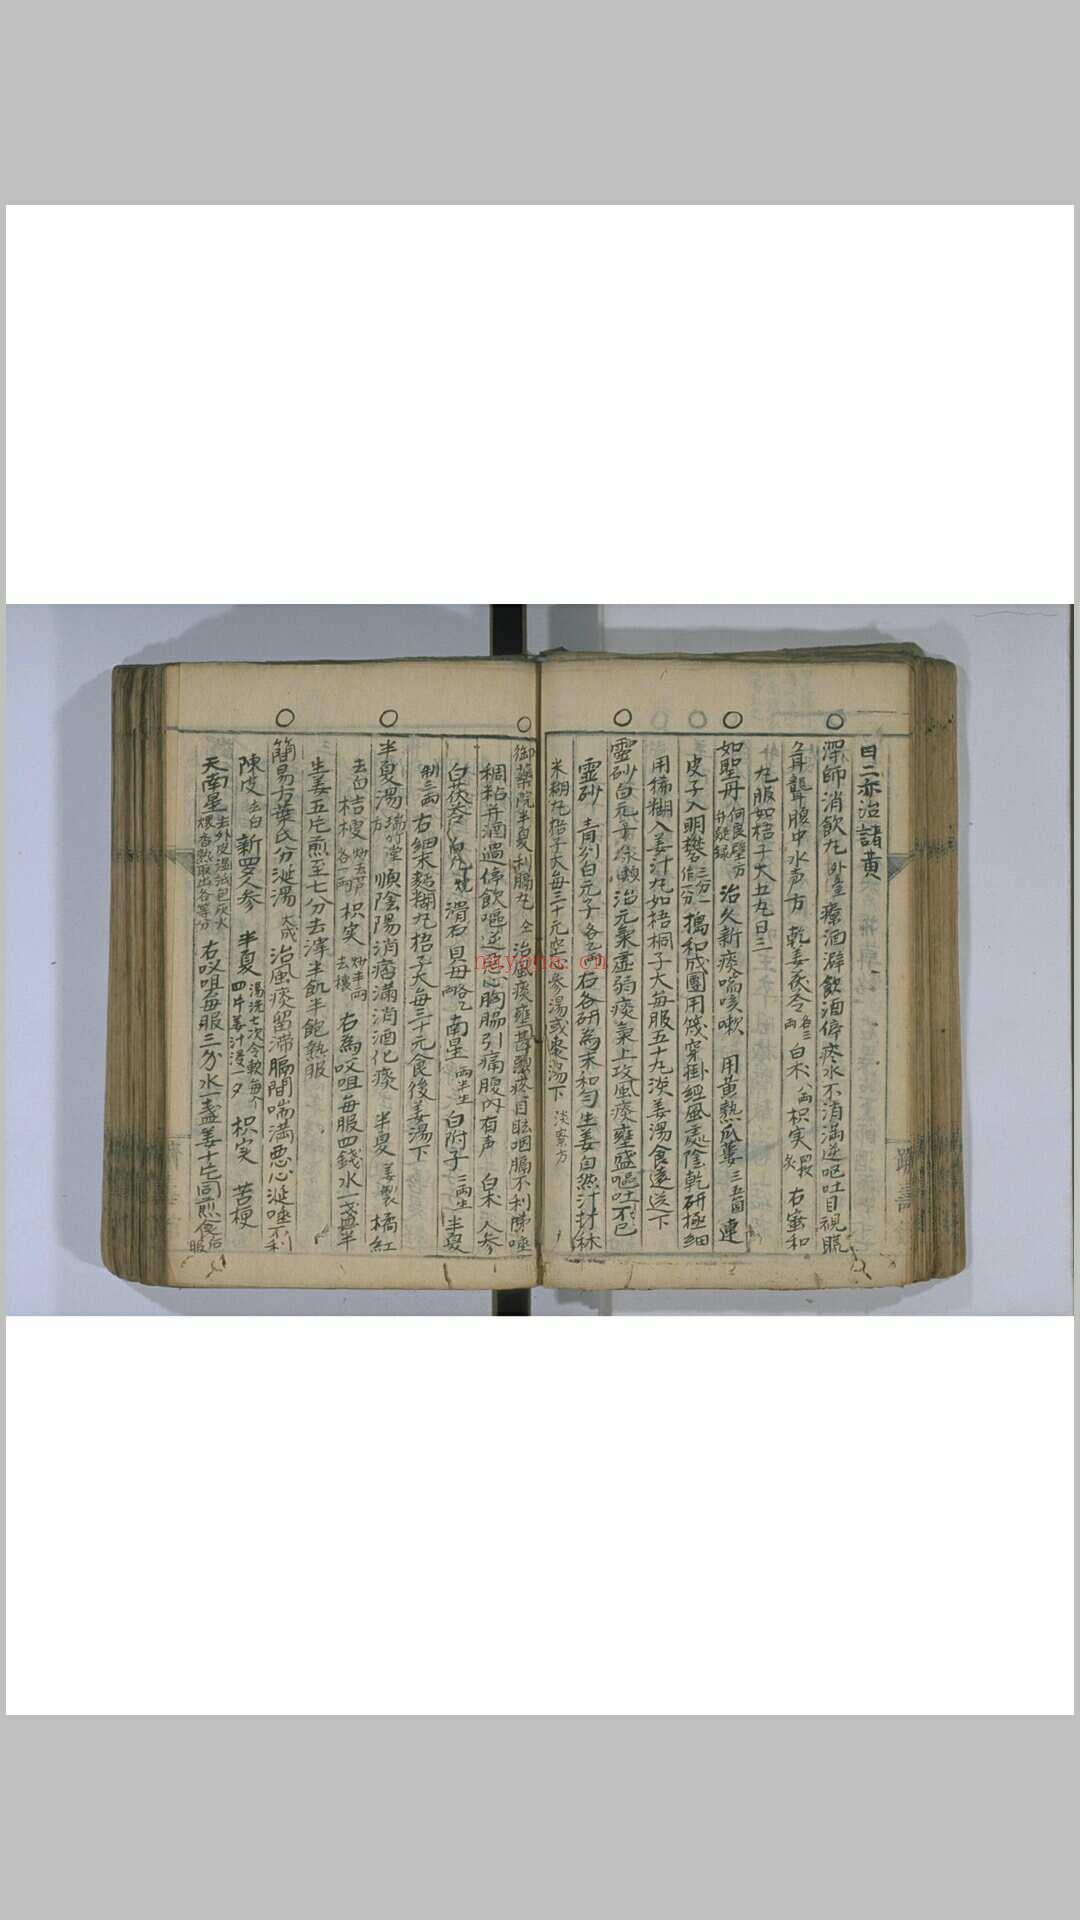 日二亦治諸黄
深師消飲丸 外臺 療酒澼飲酒停疼水不消滿逆呕吐目視䀮
耳聾腹中水声方 乾姜茯令 各三两 白朮 八両 枳実 四枚炙 右蜜和
丸服如梧子大五丸日三
如聖丹 治久新痰喘咳嗽 用黄熟瓜蔞 三五箇 連
皮子入明礬 搗和成團用篾穿掛經風處陰乾研極細
用稀糊入姜汁丸如梧桐子大每服五十丸淡姜湯食遠送下
靈砂白元子 治元氣虛弱痰氣上攻風痰壅盛呕吐不已
霊砂 青州白元子 各 右各研為末和勻生姜自然汁打秫
米糊丸梧子大每三十元空心参湯或棗湯下 淡寮方
御藥院半夏利膈丸 仝 治風痰壅甚頭疼目眩咽膈不利涕唾
稠粘并酒過停飲嘔逆悪心胸脇引痛腹内有声 白朮 人参
白茯苓 白凡 滑石 貝母 南星 一両半生 白附子 二両生 半夏
制三両 右細末麪糊丸梧子大每三十元食後姜湯下
半夏湯 瑞竹堂方 順陰陽消痞滿消酒化痰 半夏 姜製 橘紅
去白 桔梗 炒去芦各一両 枳実 炒半両去穰 右為㕮咀每服四錢水一盞半
生姜五片煎至七分去滓半飢半飽熱服
簡易方葉氏分涎湯 大成 治風痰留滞膈間喘満悪心涎唾不利
陳皮 去白 新罗人参 半夏 湯洗七次令軟每个四片姜汁浸一夕 枳実 苦梗
天南星 去外皮湿紙包灰火煨香熟取出各等分 右㕮咀每服三分水一盞姜十片同煎食后服
nayona.cn